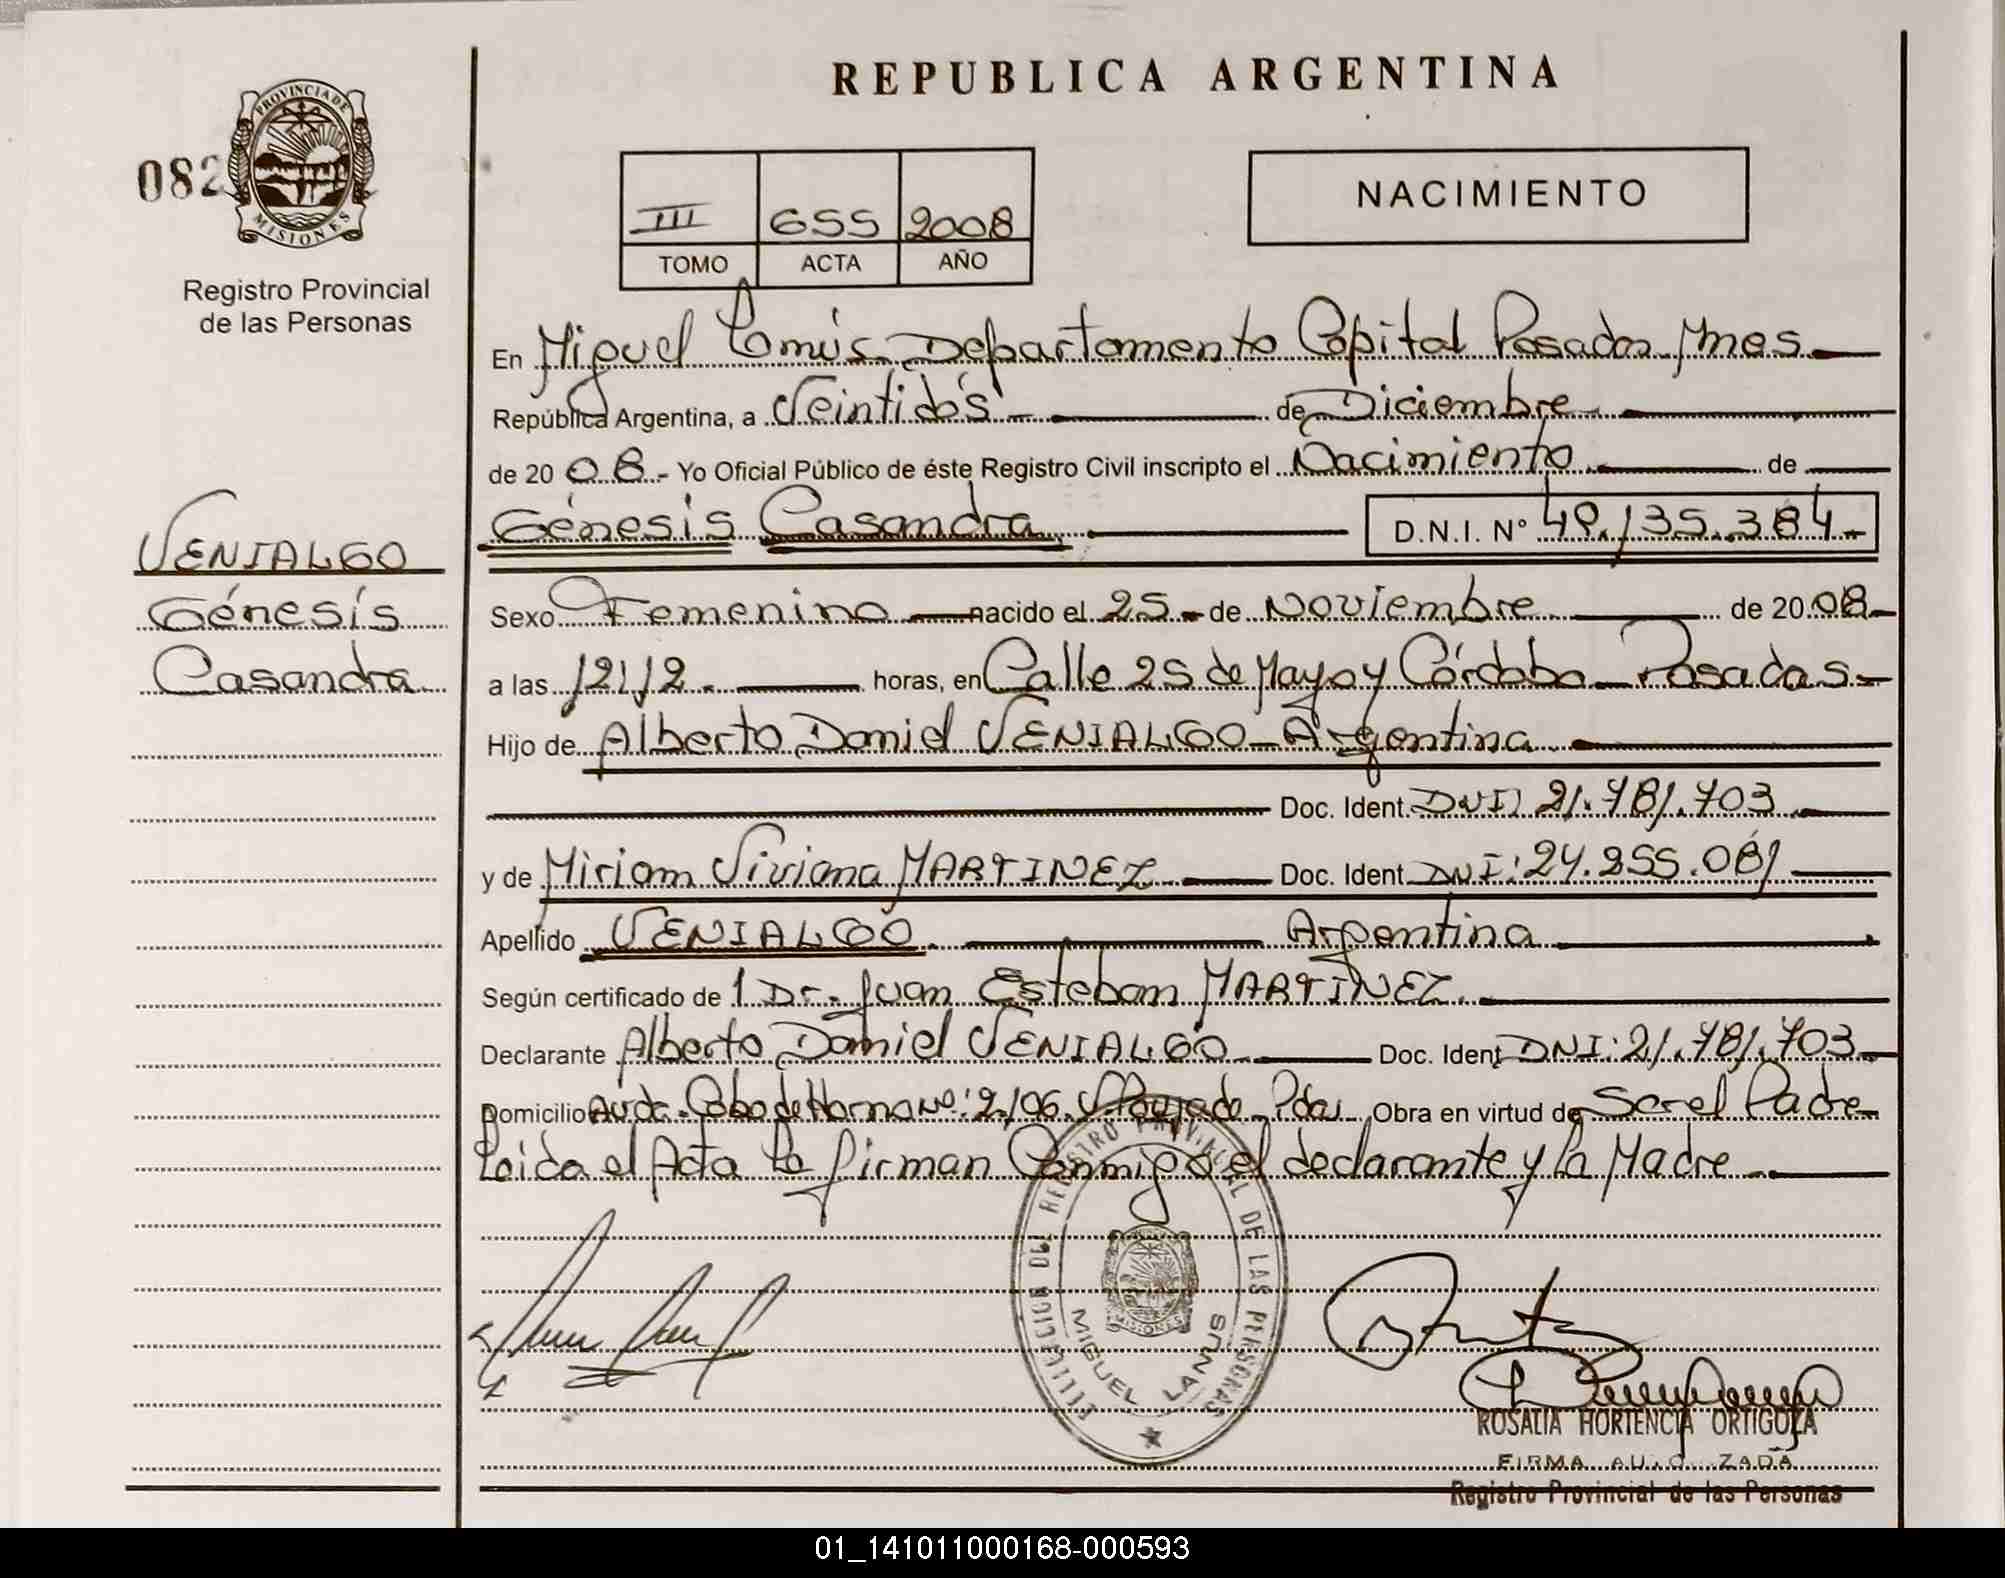 REPUBLICA ARGENTINA
PROVINCIA DE
MISIONES
082
Registro Provincial
de las Personas
III 655 2008
TOMO ACTA AÑO
NACIMIENTO
En Miguel Lanús Departamento Capital Posadas Mnes
República Argentina, a Veintidós de Diciembre
de 20 08 - Yo Oficial Público de éste Registro Civil inscripto el Nacimiento de
Génesis Casandra D.N.I. Nº 49.135.384
VENIALGO
Génesis
Casandra
Sexo Femenino nacido el 25 de Noviembre de 20 08
a las 12:12 horas, en Calle 25 de Mayo y Córdoba - Posadas
Hijo de Alberto Daniel VENIALGO - Argentina
Doc. Ident. DNI: 21.781.703
y de Miriam Viviana MARTINEZ Doc. Ident DNI: 24.255.081
Apellido VENIALGO Argentina
Según certificado de Dr. Juan Esteban MARTINEZ
Declarante Alberto Daniel VENIALGO Doc. Ident DNI: 21.781.703
Domicilio Avda. Cabo de Horno Nº: 2106 Pdas Obra en virtud de Ser el Padre
Leida el Acta la firman Conmigo el declarante y la Madre
REGISTRO PROVINCIAL DE LAS PERSONAS
MISIONES
MIGUEL LANUS
ROSALIA HORTENCIA ORTIGOZA
FIRMA AU O ZADA
Registro Provincial de las Personas
01_141011000168-000593